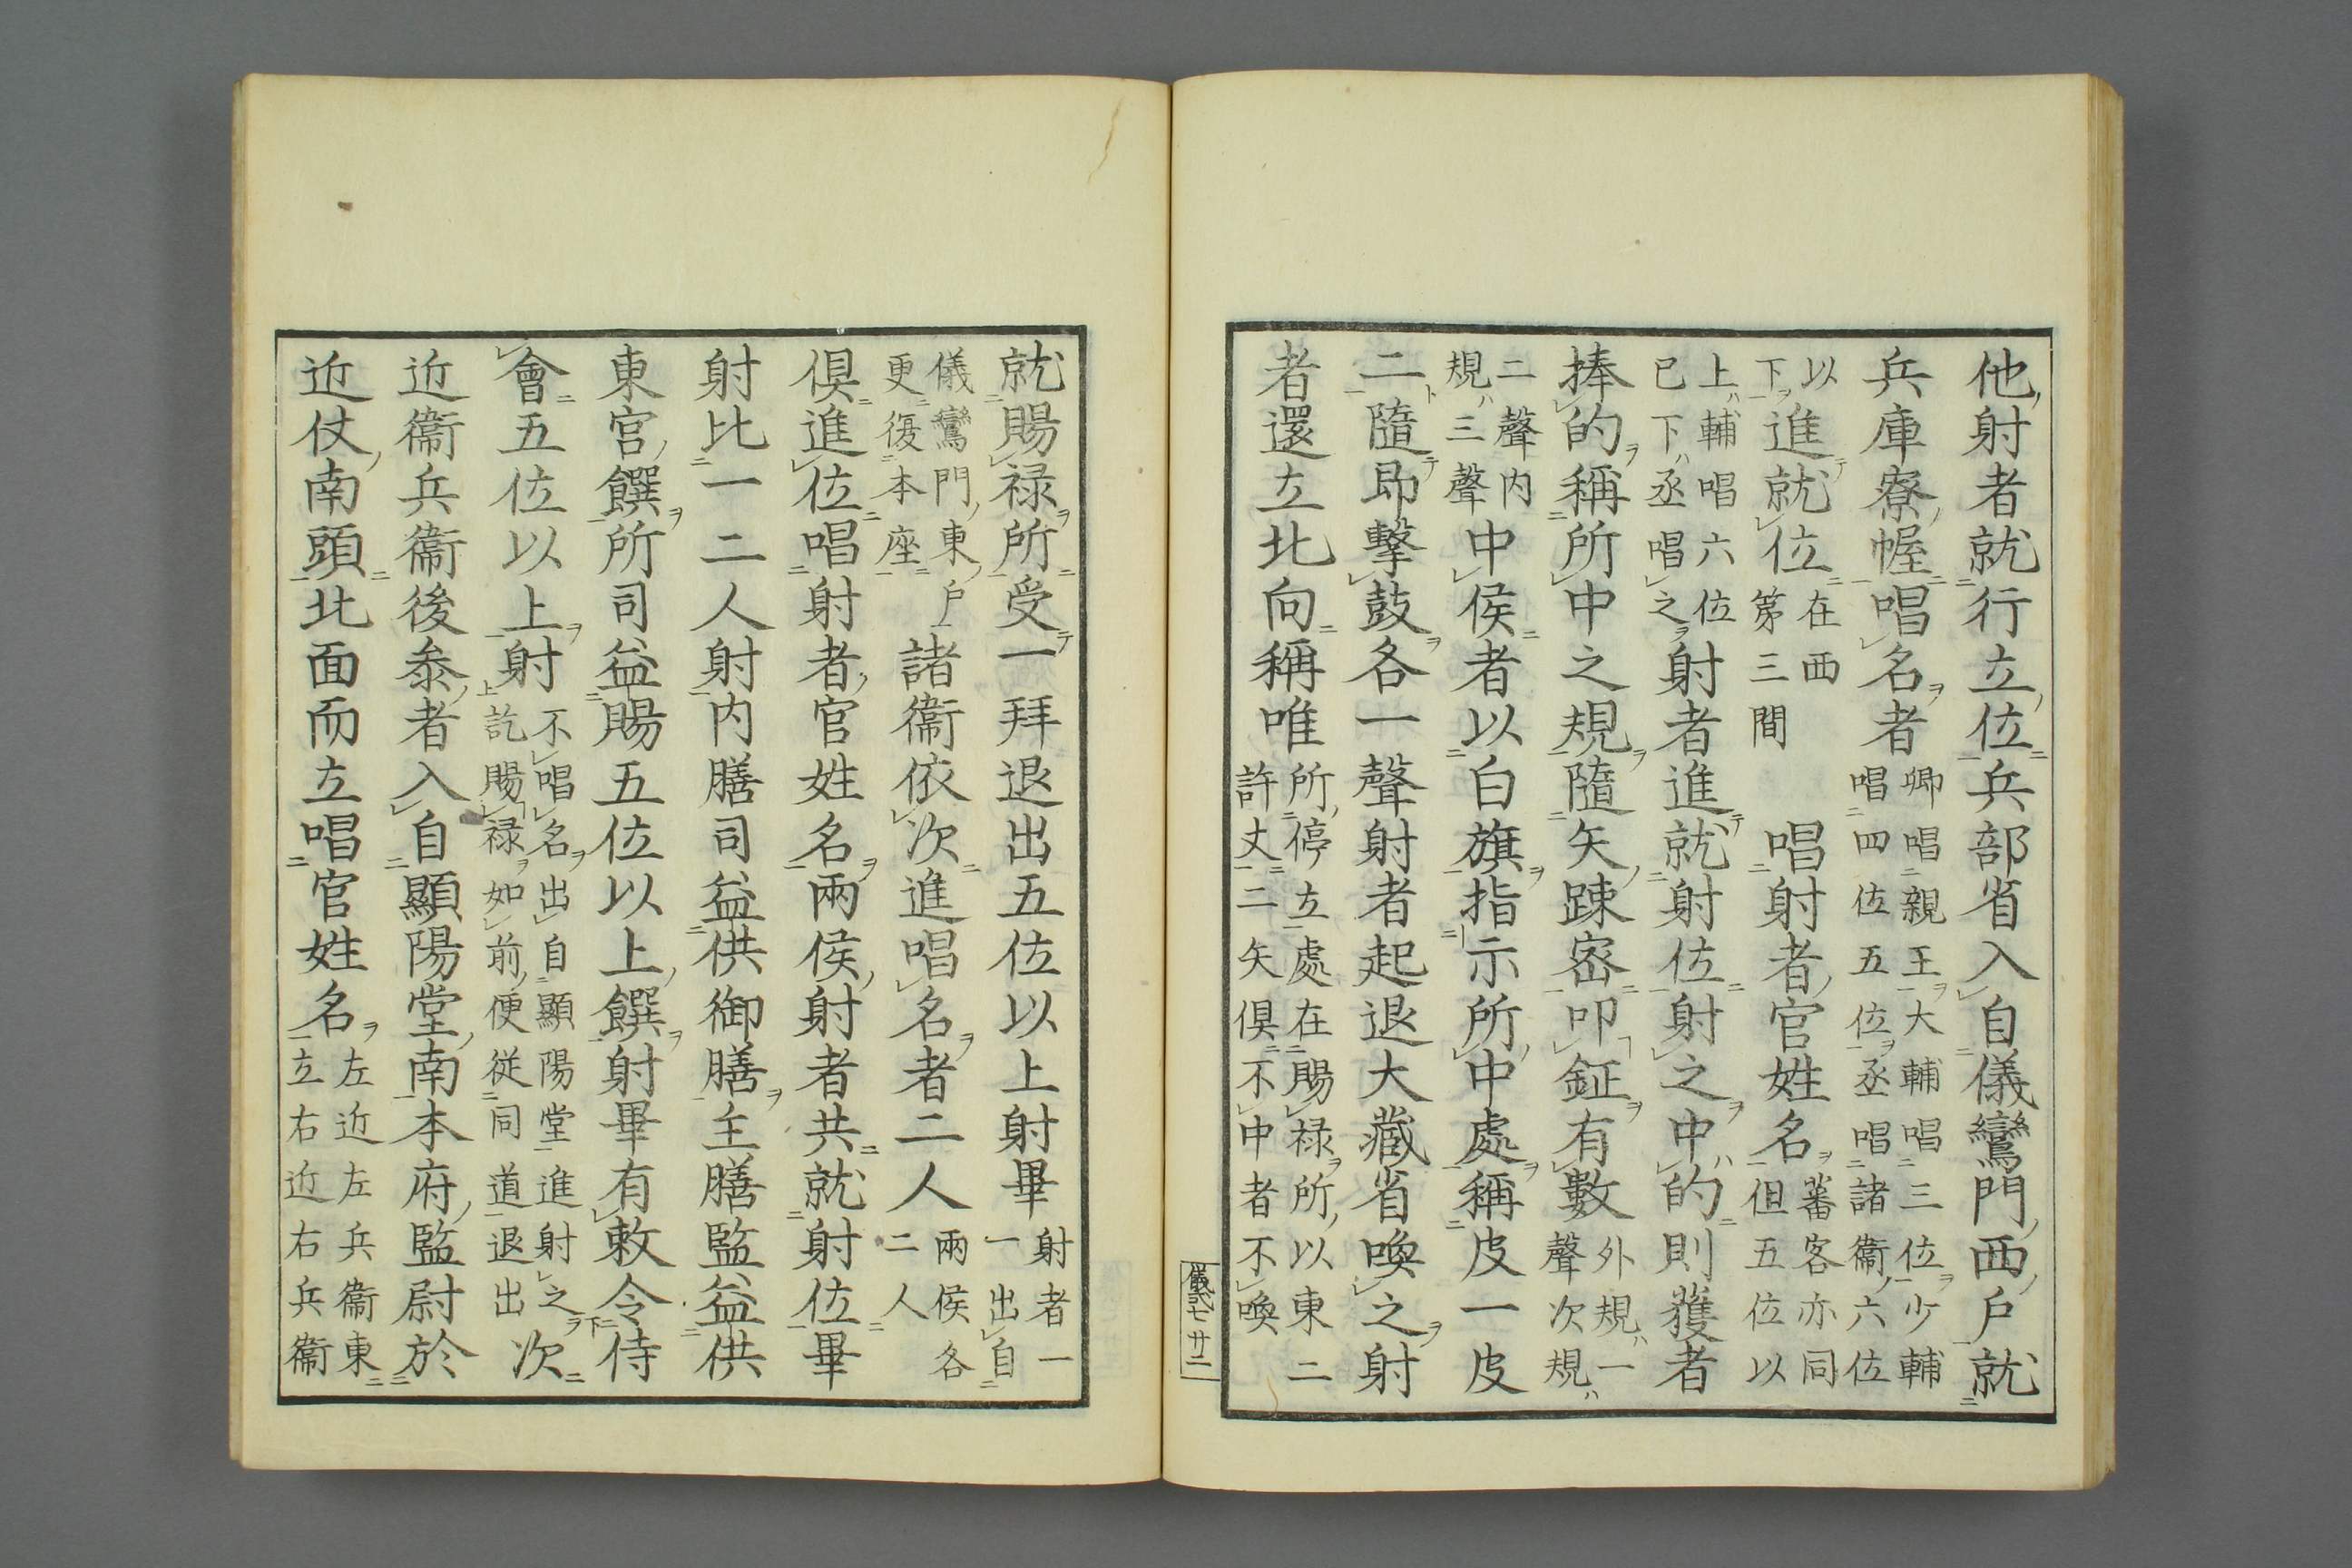 他射者就行立位兵部省入自儀鸞門西戶就
兵庫寮幄唱名者卿唱親王大輔唱三位少輔
唱四位五位丞唱諸衞六位
以
下進就位在西
第三間唱射者官姓名蕃客亦同
但五位以
上輔唱六位
已下丞唱之射者進就射位射之中的則獲者
捧的稱所中之規隨矢踈密叩鉦有數外規一
聲次規
二聲內
規三聲中侯者以白旗指示所中處稱皮一皮
二隨即擊鼓各一聲射者起退大藏省喚之射
者還立北向稱唯所停立處在賜祿所以東二
許丈二矢俱不中者不喚
儀式七 廿二
就賜祿所受一拜退出五位以上射畢射者一
一出自
儀鸞門東戶
更復本座諸衞依次進唱名者二人兩侯各
二人
俱進位唱射者官姓名兩侯射者共就射位畢
射比一二人射內膳司益供御膳主膳監益供
東宮饌所司益賜五位以上饌射畢有敕令侍
會五位以上射不唱名出自顯陽堂進射之
訖賜祿如前便從同道退出次
近衞兵衞後參者入自顯陽堂南本府監尉於
近仗南頭北面而立唱官姓名左近左兵衞東
立右近右兵衞